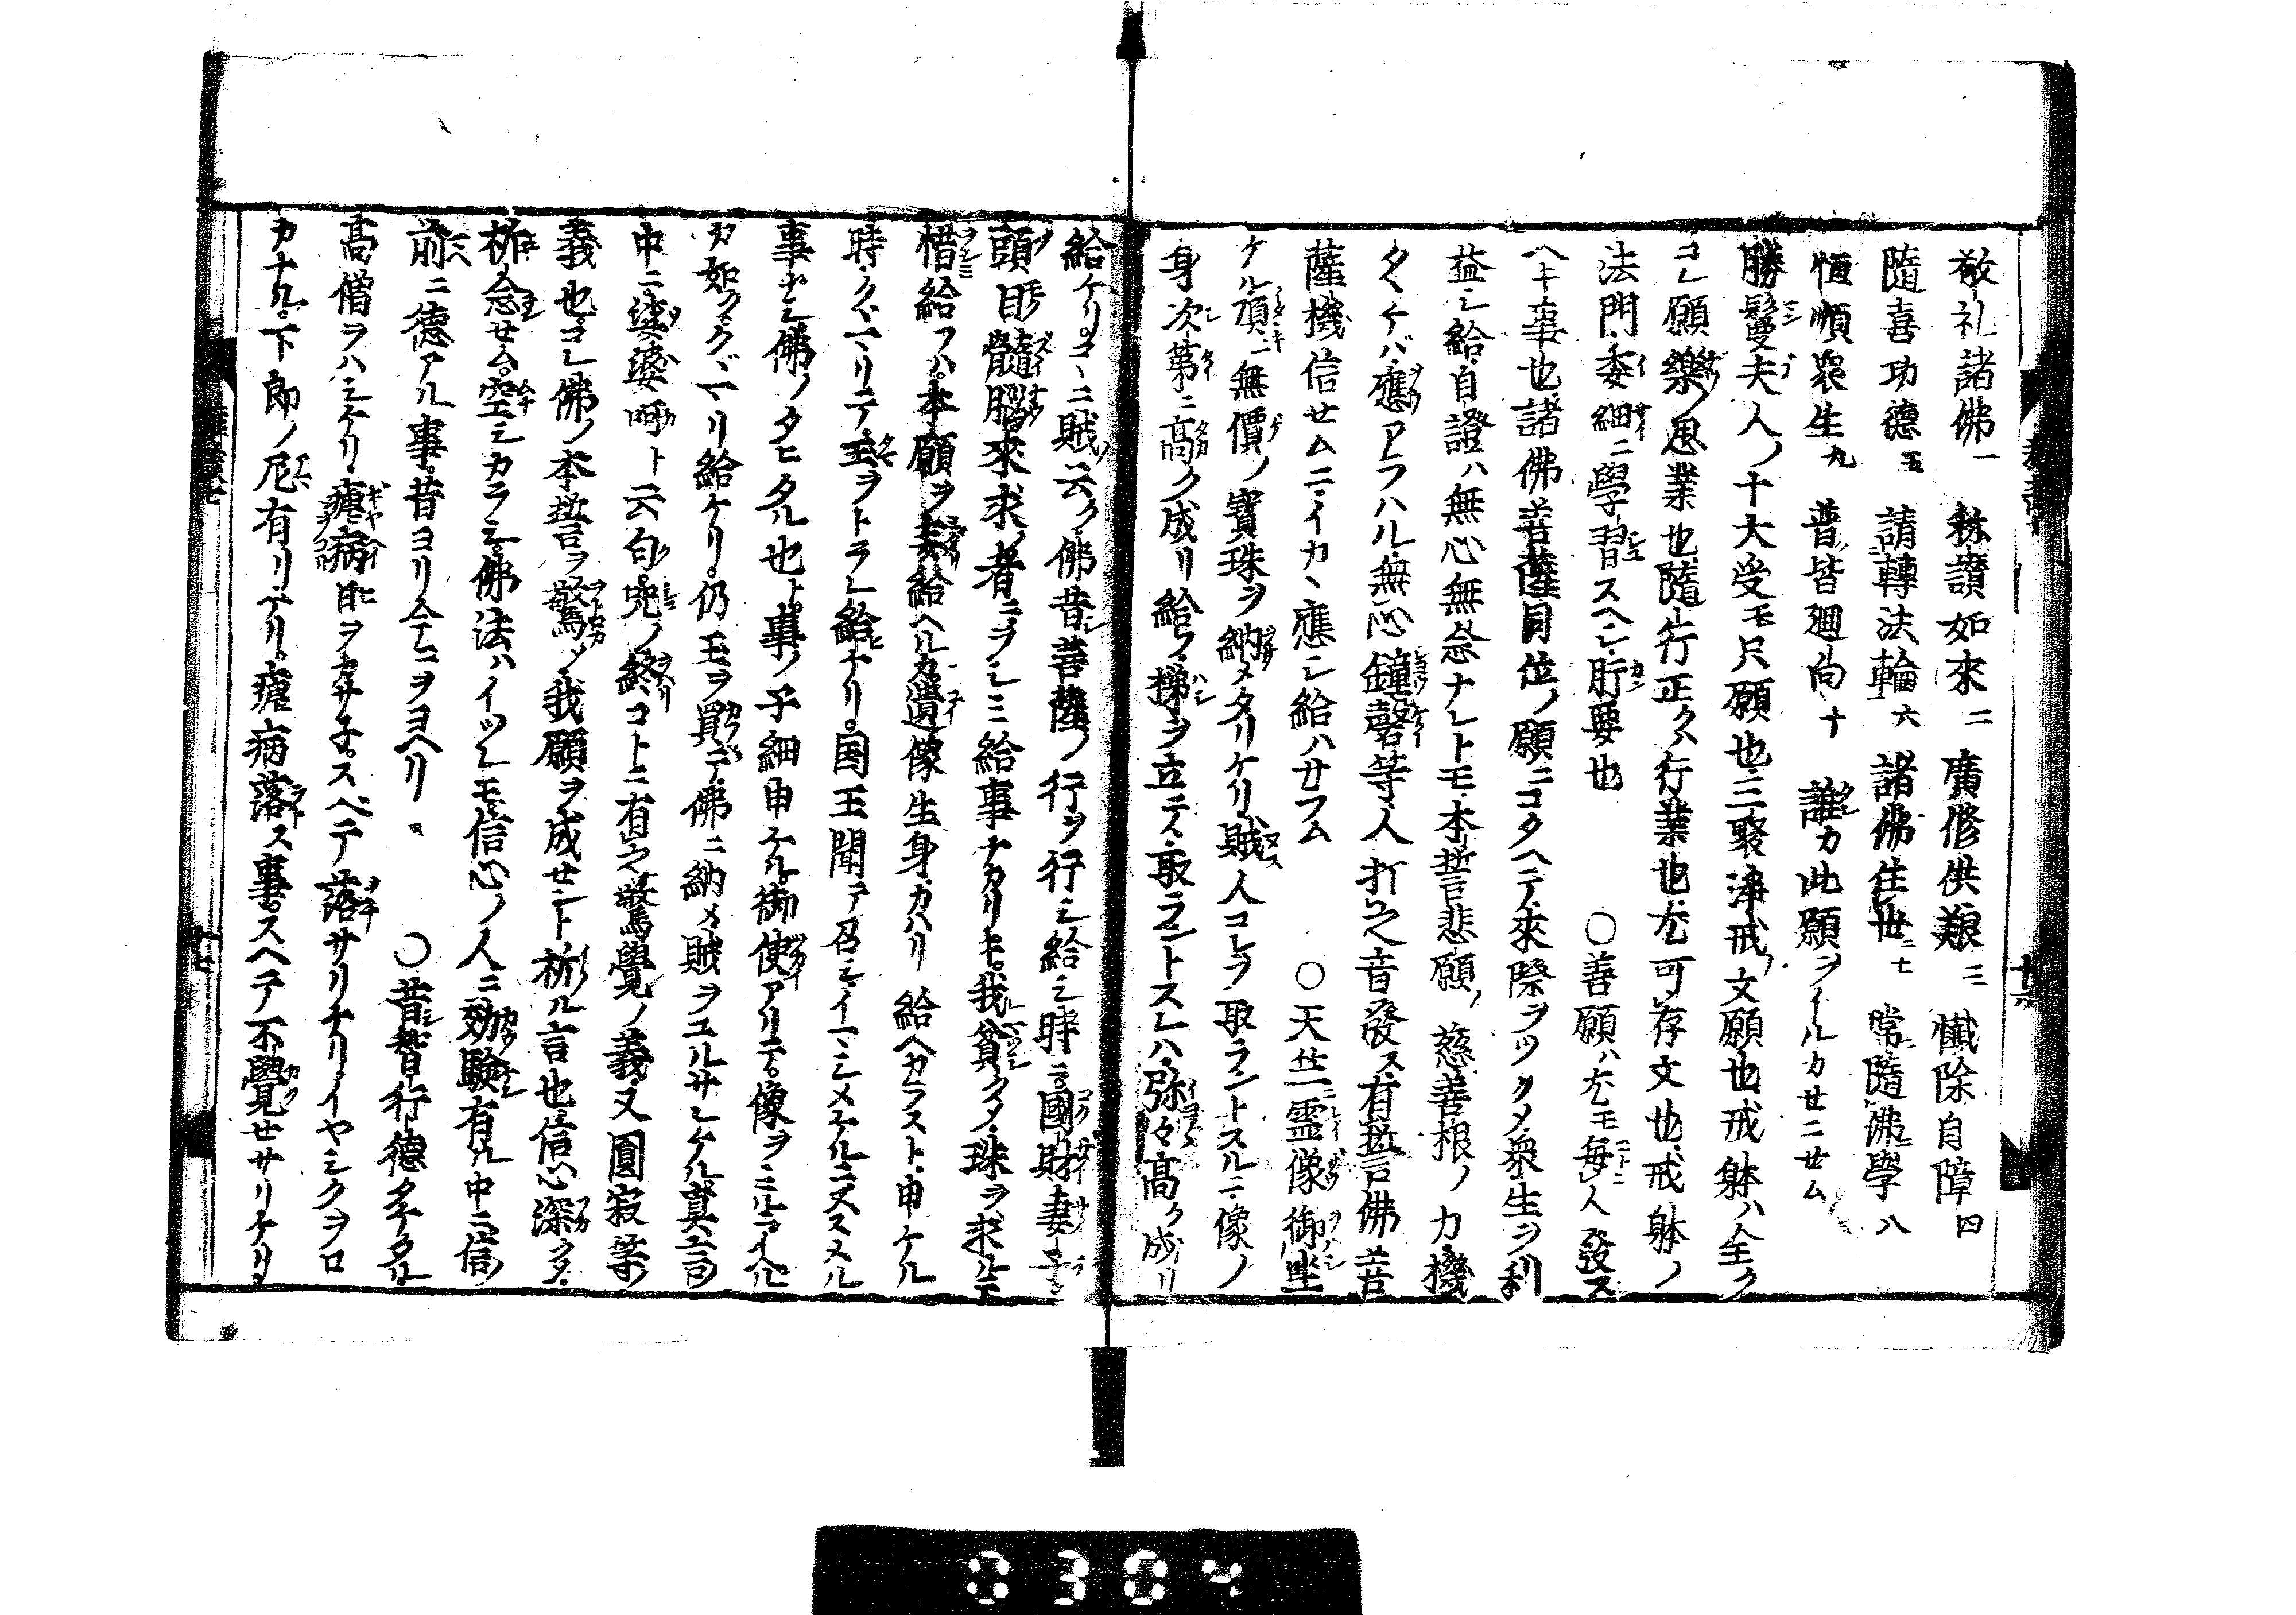 敬礼諸佛一 称讃如來二 廣修供養三 懴除自障四
隨喜功德五 請轉法輪六 諸佛住世七 常隨佛學八
恒順衆生九 普皆廻向十 誰カ此願ヲイルカせニせム
勝鬘夫人ノ十大受モ只願也三聚浄戒ノ文願也戒躰ハ全ク
コレ願樂ノ思業也隨行正クハ行業也尤可存文也戒躰ノ
法門委細ニ學習スヘシ肝要也 ○善願ハ尤モ毎人發ス
ヘキ事也諸佛菩薩因位ノ願ニコタヘテ來際ヲツクメ衆生ヲ利
益シ給自證ハ無心無念ナレトモ本誓悲願ノ慈善根ノ力機
クヽケバ應アラハル無心鐘磬等人打之音發ス有誓言佛菩
薩機信せムニイカヽ應シ給ハサラム ○天竺ニ霊像御坐
ケル頂ニ無價ノ寳珠ヲ納メタリケリ賊人コレヲ取ラントスルニ像ノ
身次第ニ高ク成リ給フ梯ヲ立テヽ取ラントスレハ弥々高ク成リ
給ケリコヽニ賊云ク佛昔菩薩ノ行ヲ行シ給シ時ニ國財妻子
頭目髓腦來求者ニヲシミ給事ナカリキ我貧クメ珠ヲ求ルニ
惜給フハ本願ヲ妄給ヘルカ遺像生身カハリ給ヘカラスト申ケル
時クヾマリテ玉ヲトラレ給ケリ国王聞テ召シイマシメケルニヌスメル
事ナシ佛ノタヒタル也ト事ノ子細申ケル御使アリテ像ヲミルニイヘル
カ如クヾマリ給ケリ仍玉ヲ買テ佛ニ納メ賊ヲユルサレケル真言
中ニ娑婆呵ト云句呪ノ終コトニ有之驚覺ノ義又圓寂等ノ
義也コレ佛ノ本誓ヲ驚メ我願ヲ成せント祈ル言也信心深クメ
祈念せム空シカラシ佛法ハイツレモ信心ノ人ニ効驗有ル中ニ信ノ
前ニ德アル事昔ヨリ今ニヲヨヘリ ○昔智行德タケタル
高僧ヲハシケリ瘧病日ヲカサ子スベテ落サリケリイヤシクヲロ
カナル下郎ノ尼有リケリ瘧病落ス事スヘテ不覺せサリケリ